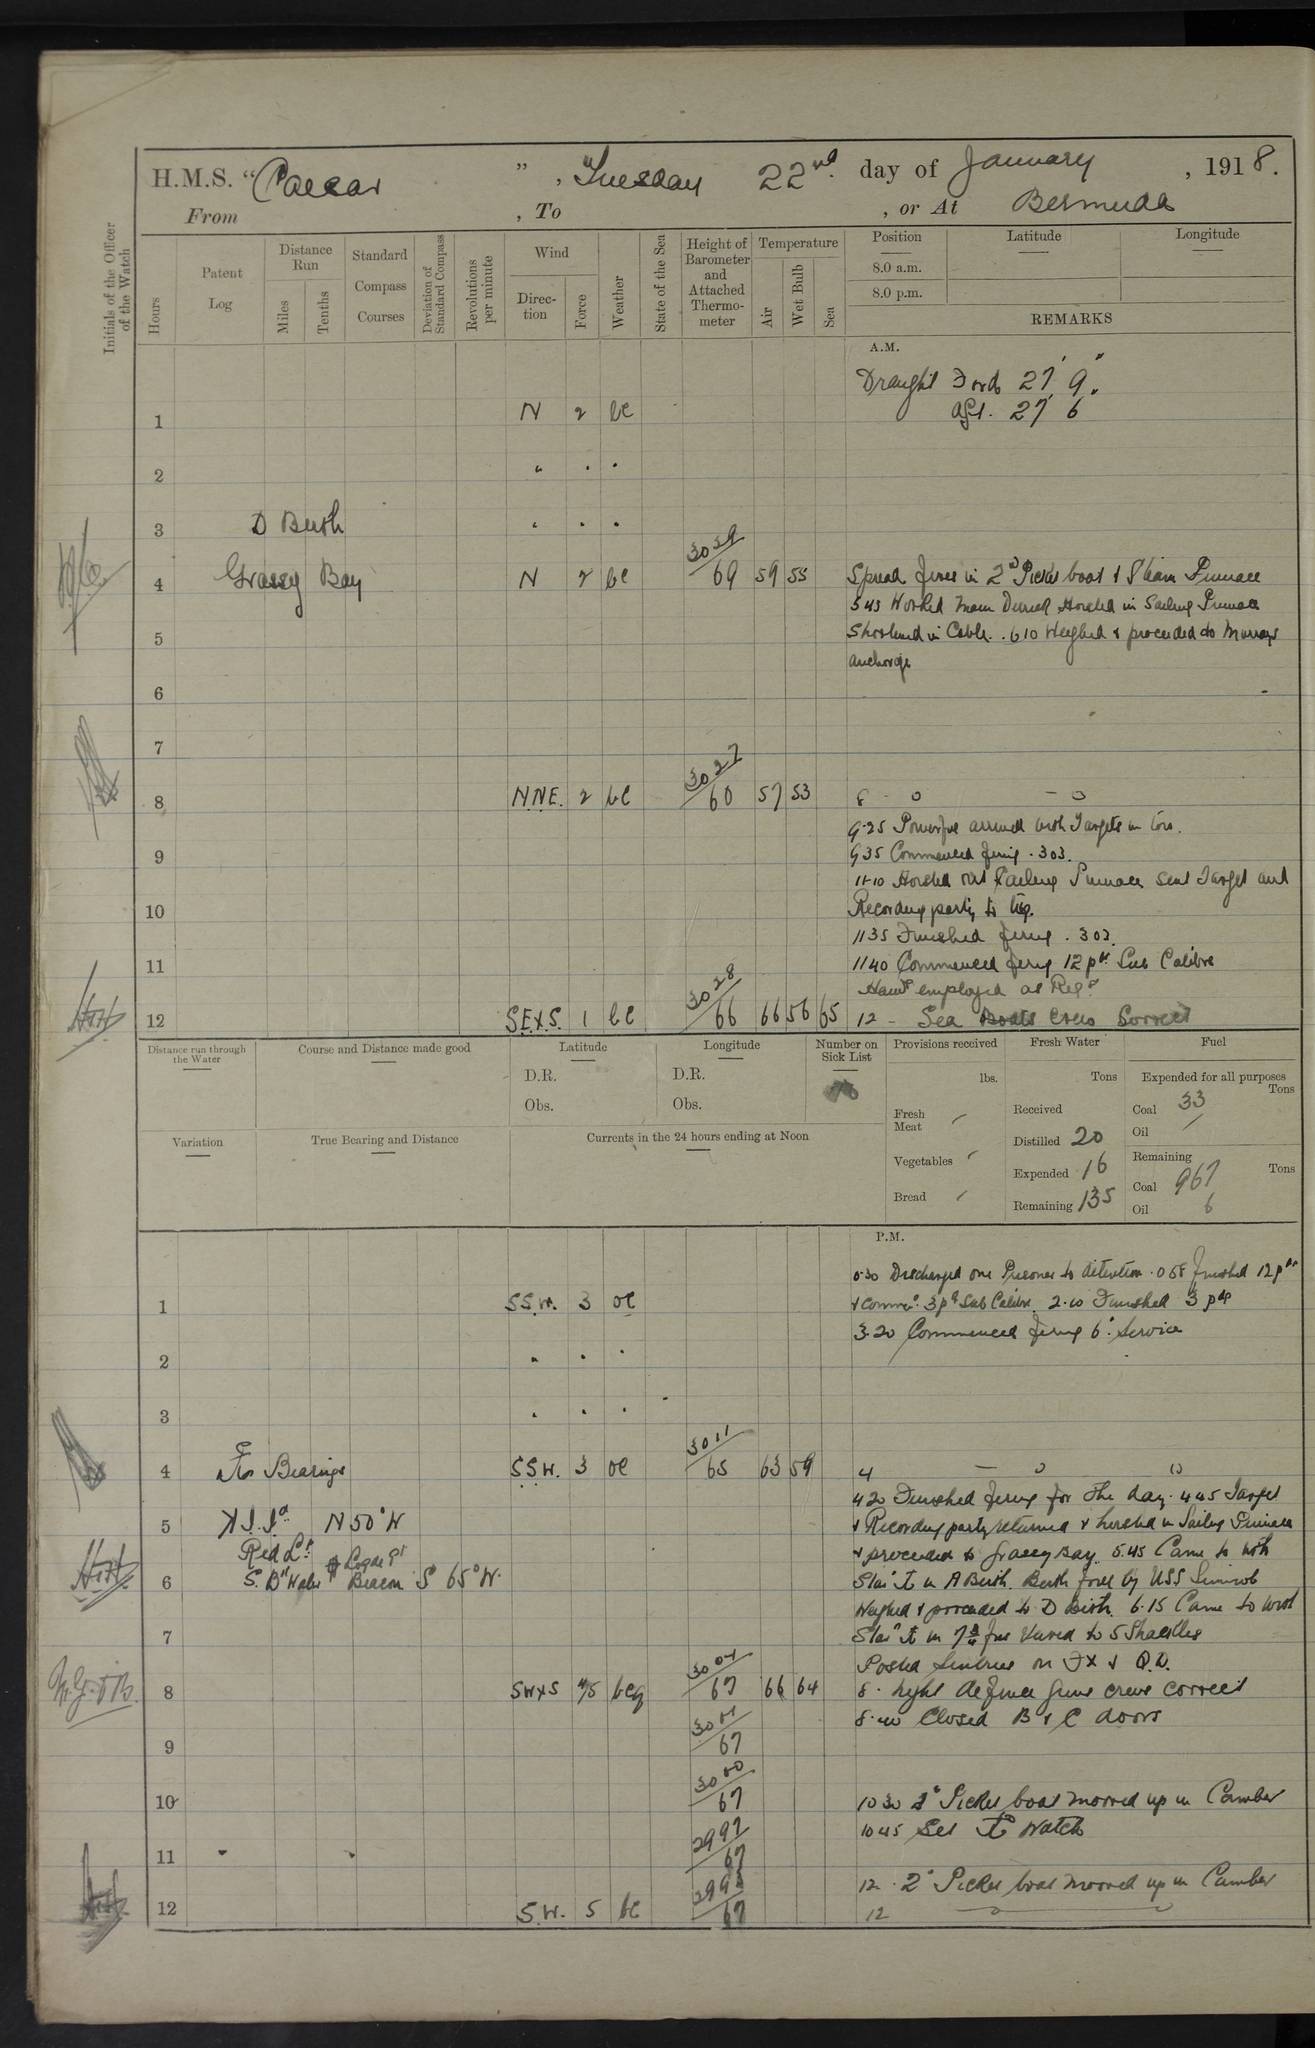 H.M.S. "Caesar", Tuesday 22nd. day of January, 1918.
From , To , or At Bermuda
Initials of the Officer of the Watch
Hours
Patent Log
Distance Run
Miles
Tenths
Standard Compass Courses
Deviation of Standard Compass
Revolutions per minute
Wind
Direction
Force
Weather
State of the Sea
Height of Barometer and Attached Thermometer
Temperature
Air
Wet Bulb
Sea
Position
Latitude
Longitude
8.0 a.m.
8.0 p.m.
REMARKS
A.M.
Draught Ford 27' 9"
1 N 2 bc Aft. 27' 6"
2 " . .
3 D Berth " . .
4 Grassy Bay N 2 bc 3029/69 59 55 Spread fires in 2nd Picket boat & Steam Pinnace
5.43 Worked Main Derrick Hoisted in Sailing Pinnace
5 Shortened in Cable. 6.10 Weighed & proceeded to Murrays
anchorage
6
7
8 NNE. 2 bc 3027/60 57 53 8 - 0 - 0
9.25 Powerful arrived with Targets in tow.
9 9.35 Commenced firing .303.
11.10 Hoisted out Sailing Pinnace sent Target and
10 Recording party to tug.
11.35 Finished firing .303.
11 11.40 Commenced firing 12 pdr Sub Calibre
Hands employed as Reqd
12 S.E.xS. 1 bc 3028/66 66 56 65 12 - Sea Boats crew Correct
Distance run through the Water
Course and Distance made good
Latitude
D.R.
Obs.
Longitude
D.R.
Obs.
Number on Sick List
Provisions received
lbs.
Fresh Meat /
Vegetables /
Bread /
Fresh Water
Tons
Received
Distilled 20
Expended 16
Remaining 135
Fuel
Expended for all purposes
Tons
Coal 33
Oil /
Remaining
Tons
Coal 967
Oil 6
Variation
True Bearing and Distance
Currents in the 24 hours ending at Noon
P.M.
0.30 Discharged one Prisoner to detention. 0.58 finished 12 pdr
1 SSW. 3 oc & commd. 3 pdr Sub Calibre. 2.10 Finished 3 pdr
3.20 Commenced firing 6" Service
2 " . .
3 . . .
4 Bearings S.S.W. 3 oc 3011/65 63 59 4 - 0 0
4.20 Finished firing for the day. 4.45 Target
5 N 50° W & Recording party returned & hoisted in Sailing Pinnace
Red Lt. & proceeded to Grassy Bay. 5.45 Came to with
6 Beacon S 65° W. Starbd in A Berth. Berth foul by USS
Weighed & proceeded to D Berth. 6.15 Came to with
7 Starbd in 7 3/4 fms Veered to 5 Shackles
Posted Sentries on FX & Q.D.
8 SWxS 4/5 bcq 3004/67 66 64 8. Night defence guns crews correct
8.40 Closed B & C doors
9 3001/67
10 3000/67 10.30 2nd Picket boat moored up in Camber
10.45 Set Watch
11 2997/67
12. 2nd Picket boat moored up in Camber
12 S.W. 5 bc 2995/67 12